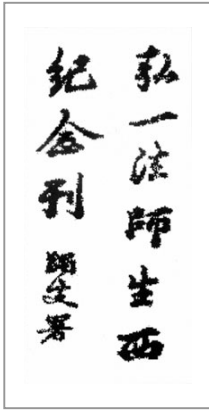 弘一法師生西
紀念刊 蠲叟署